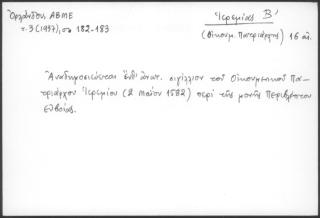 Ὀρλάνδου, ΑΒΜΕ
τ. 3 (1937), σσ 182-183
Ἱερεμίας Β'
(Οἰκουμ. Πατριάρχης) 16 αἰ.
Ἀναδημοσιεύεται ἐπ' ἀνατ. σιγίλλιον τοῦ Οἰκουμενικοῦ Πα-
τριάρχου Ἱερεμίου (2 Μαΐου 1582) περὶ τῆς μονῆς Περιβλέπτου
Εὐβοίας.